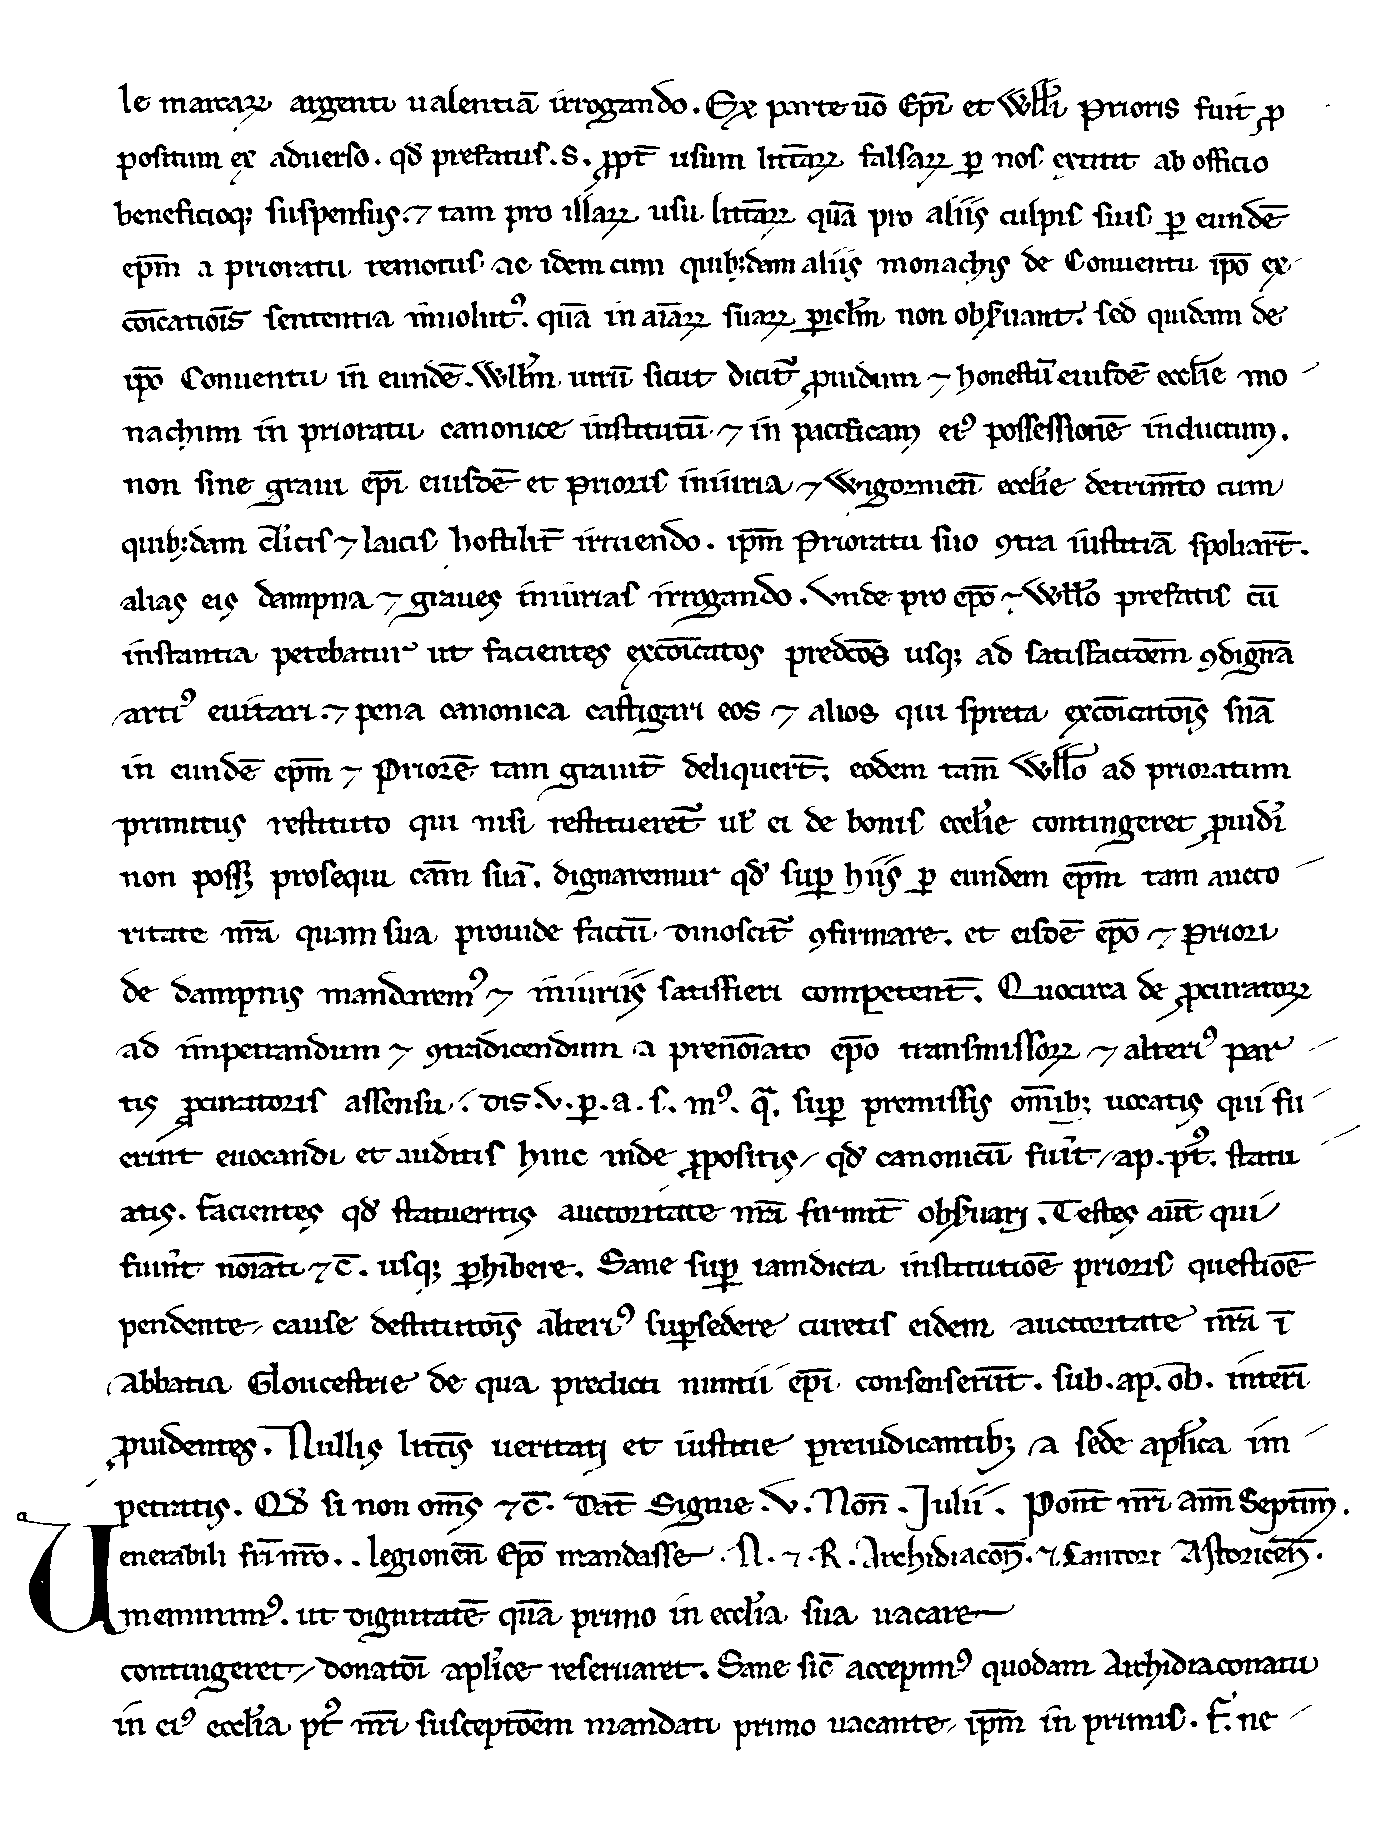 le marcaꝝ argenti ualentiā irrogando. Ex parte ūo Ep̄i et Wll̄i Prioris fuit ꝓ
positum ex aduerso. qd̓ prefatus. S. ꝓpt̄ usum litt̄aꝝ falsaꝝ ꝑ nos extitit ab officio
beneficioqꝫ suspensus. ⁊ tam pro illaꝝ usu litt̄aꝝ quā pro aliis culpis suis ꝑ eundē
ep̄m a prioratu remotus ac idem cum quibꝫdam aliis monachis de Conuentu ip̄o ex
cōicatiōis sententia inuolut᾽. quā in aīaꝝ suaꝝ ꝑicl̄m non obs̓uant. sed quidam de
ip̄o Conuentu in eundē. Wll̄m uirū sicut dicit᷑ ꝓuidum ⁊ honestū eiusdē eccl̄ie mo
nachum in prioratu canonice institutū ⁊ in pacificam ei᾽ possessionē inductum.
non sine graui ep̄i eiusdē et Prioris iniuria ⁊ Wigornien̄ eccl̄ie detrim̄to cum
quibꝫdam cl̓icis ⁊ laicis hostilit̄ irruendo. ip̄m Prioratu suo ꝯtra iustitiā spoliarīt.
alias eis dampna ⁊ graues iniurias irrogando. Vnde pro ep̄o ⁊ Wll̄o prefatis cū
instantia petebatur ut facientes excōicatos predc̄os usqꝫ ad satisfactiōem ꝯdignā
arti᾽ euitari. ⁊ pena canonica castigari eos ⁊ alios qui spreta excōicatiōis sn̄ia
in eundē ep̄m ⁊ Priorē tam grauit̄ deliquert̄. eodem tam̄ Wll̄o ad prioratum
primitus restituto qui nisi restitueret᷑ ul̓ ei de bonis eccl̄ie contingeret ꝓuidi
non possꝫ prosequi cām suā. dignaremur qd̓ suꝑ hiis ꝑ eundem ep̄m tam aucto
ritate nr̄a quam sua prouide factū dinoscit᷑ ꝯfirmare. et eisdē ep̄o ⁊ Priori
de dampnis mandarem᾽ ⁊ iniuriis satisfieri competent̄. Quocirca de ꝓcuratoꝝ
ad impetrandum ⁊ ꝯtradicendum a prenōiato ep̄o transmissoꝝ ⁊ alteri᾽ par
tis ꝓcuratoris assensu. dis. V. ꝑ. a. s. m᾽. qͣ. suꝑ premissis om̄ibꝫ uocatis qui fu
erint euocandi et auditis hinc inde ꝓpositis qd̓ canonicū fuit̓ ap. pt᾽. statu
atis. facientes qd̓ statueritis auctoritate nr̄a firmit̄ obs̓uari. Testes aut̄ qui
fuin̓t nōiati ⁊c̄. usqꝫ ꝑhibere. Sane suꝑ iamdicta institutiōe prioris questiōe
pendente cause destitutiōis alteri᾽ suꝑsedere curetis eidem auctoritate nr̄a ī
Abbatia Gloucestrie de qua predicti nuntii ep̄i consenserūt. sub. ap. ob. interī
ꝓuidentes. Nullis litt̄is ueritati et iustitie preiudicantibꝫ a sede apl̓ica im
petratis. Qd̓ si non om̄s ⁊c̄. Dat̄ Signie. V. Non̄. Julii. Pont̄ nr̄i ann̄ Septim.
Venerabili fr̄i nr̄o. . legionen̄ Ep̄o mandasse. N. ⁊. R. Archidiacon̄. ⁊. Cantori Astoricen̄.
meminim᾽. ut dignitatē quā primo in eccl̄ia sua uacare
contingeret donatōi apl̓ice reseruaret. Sane sic̄ accepim᾽ quodam Archidiaconatu
in ei᾽ eccl̄ia pt᾽ nr̄i susceptōem mandati primo uacante ip̄m in primis. F. ne